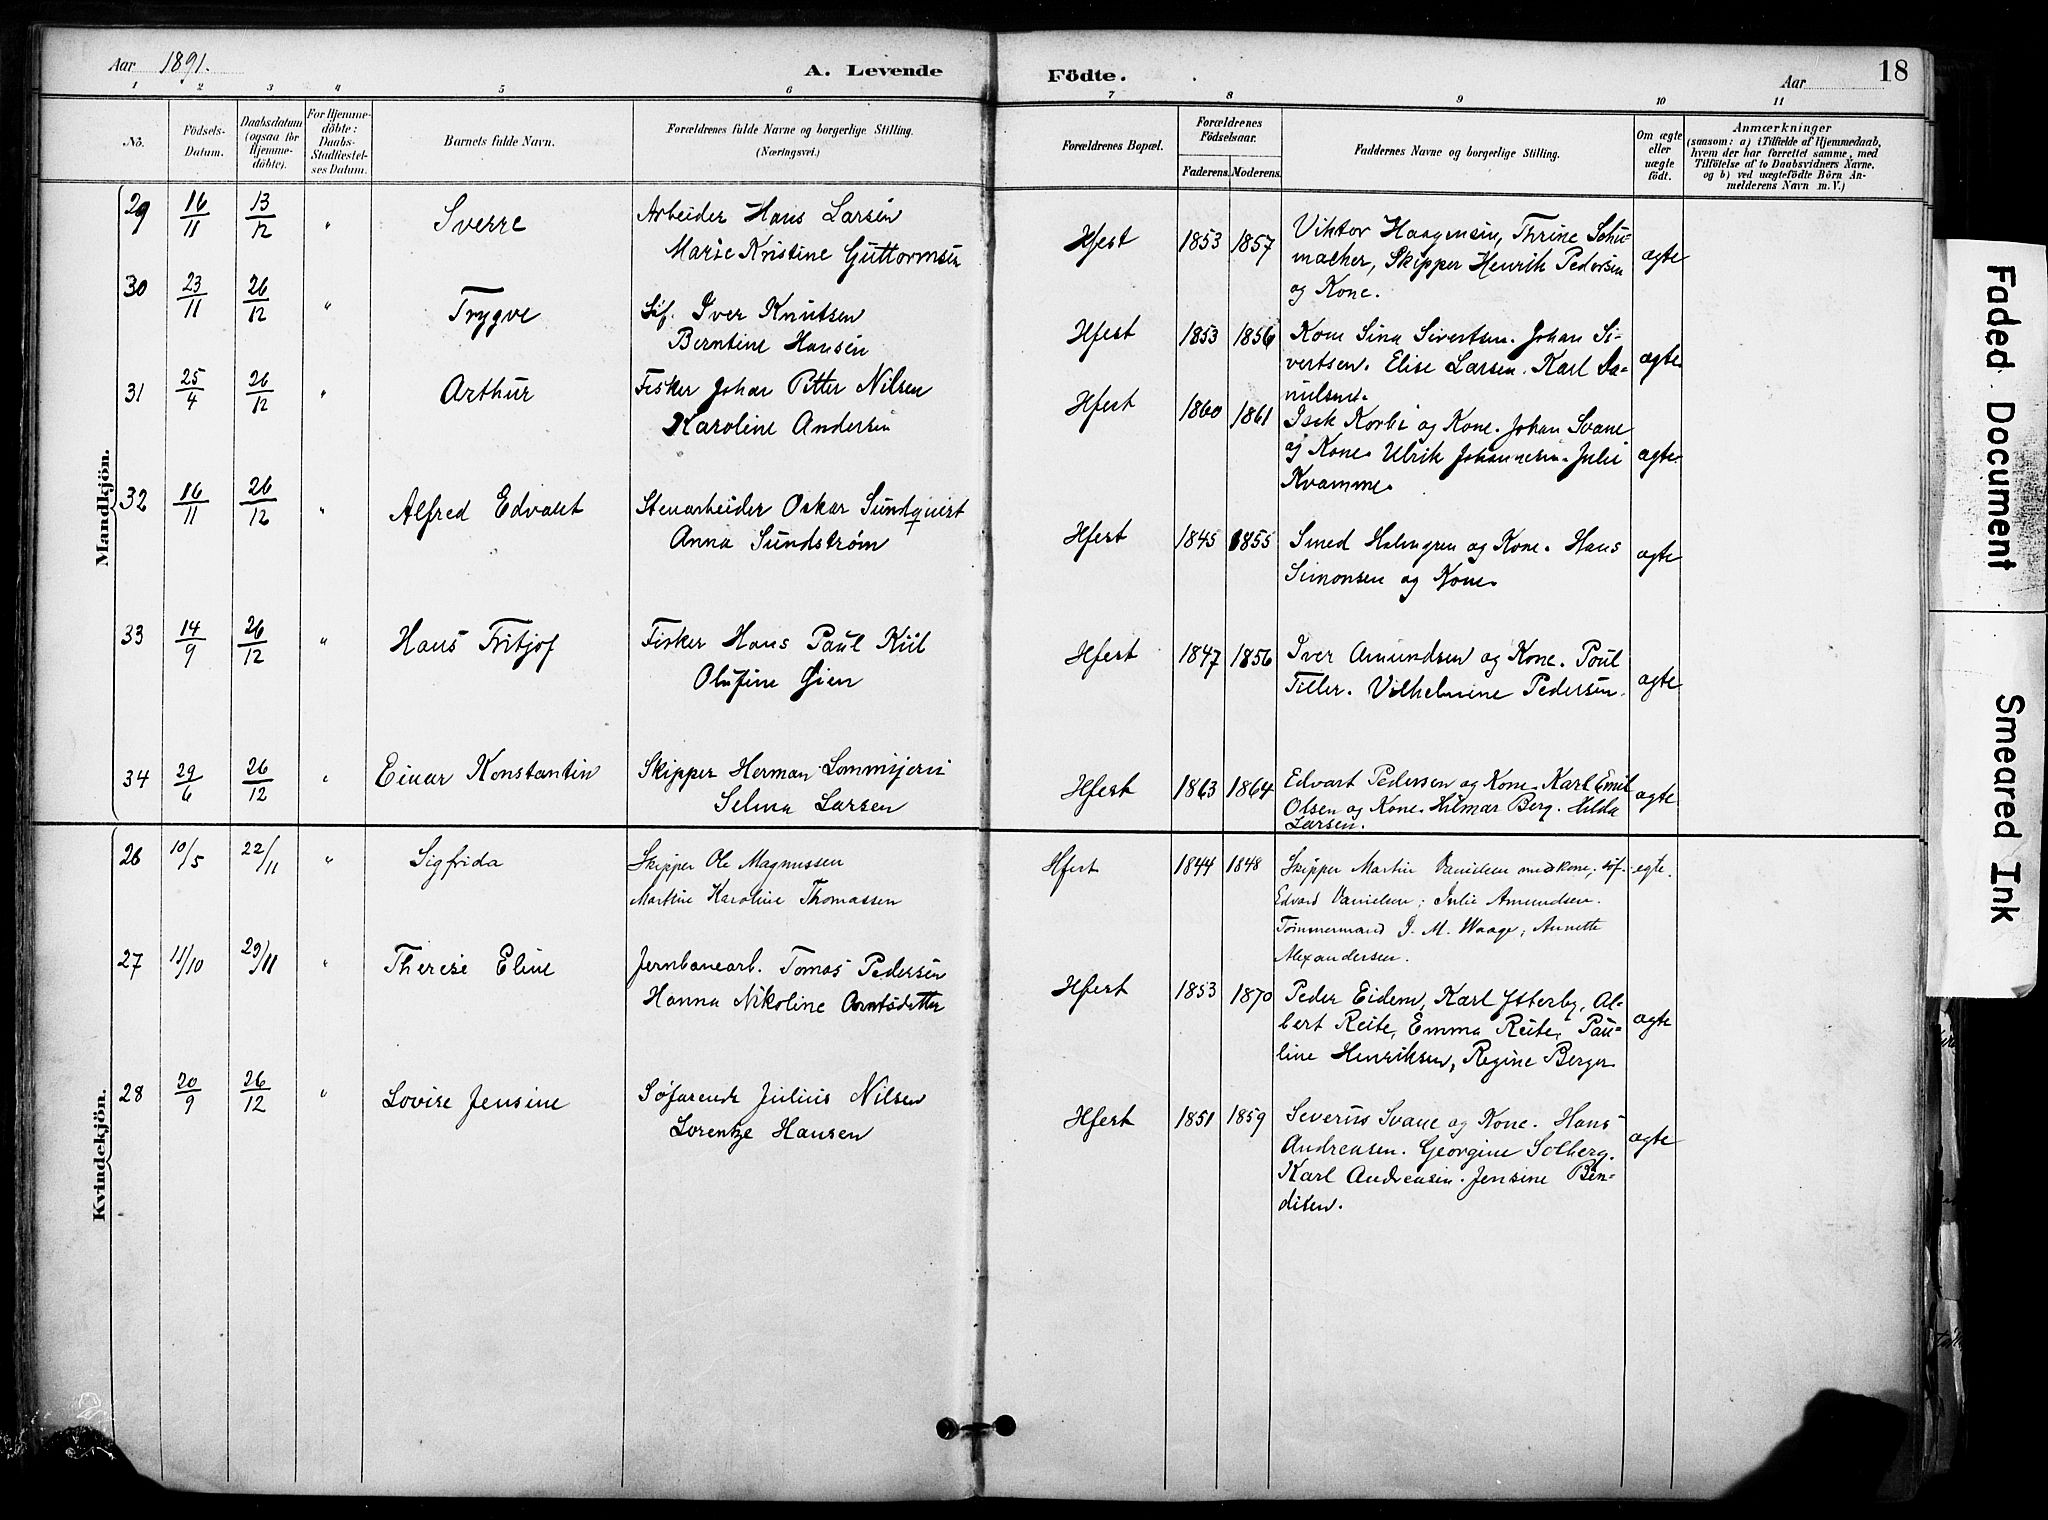 Aar 1891.
A. Levende
Födte.
Aar
18
1 2 3 4 5 6 7 8 9 10 11
No.
Födsels-
Datum.
Daabsdatum
(ogsaa for
Hjemme-
döbte).
For Hjemme-
döbte:
Daabs-
Stadfæstel-
ses Datum.
Barnets fulde Navn.
Forældrenes fulde Navne og borgerlige Stilling.
(Næringsvei.)
Forældrenes Bopæl.
Forældrenes
Födselsaar.
Faderens. Moderens.
Faddernes Navne og borgerlige Stilling.
Om ægte
eller
uægte
födt.
Anmærkninger
(saasom: a) i Tilfælde af Hjemmedaab,
hvem der har forrettet samme, med
Tilföielse af to Daabsvidners Navne,
og b) ved uægtefödte Börn An-
melderens Navn m. V.)
Mandkjön.
29 16/11 13/12 " Sverre
Arbeider Hans Larsen
Marie Kristine Guttormsen
Hfest 1853 1857
Viktor Haagensen, Thrine Schu-
macher, Skipper Henrik Pedersen
og Kone.
ægte
30 23/11 26/12 " Trygve
Søf. Iver Knutsen
Berntine Hansen
Hfest 1853 1856
Kone Sina Sivertsen. Johan Si-
vertsen. Elise Larsen. Karl Da-
nielsen.
ægte
31 25/4 26/12 " Arthur
Fisker Johan Pitter Nilsen
Karoline Andersen
Hfest 1860 1861
Isak Korbi og Kone. Johan Svane
og Kone. Ulrik Johannesen. Julie
Kvamme.
ægte
32 16/11 26/12 " Alfred Edvald
Stenarbeider Oskar Sundquist
Anna Sundstrøm
Hfest 1845 1855
Smed Holmgren og Kone. Hans
Simonsen og Kone.
ægte
33 14/9 26/12 " Hans Fritjof
Fisker Hans Paul Kiil
Olufine Øien
Hfest 1847 1856
Iver Amundsen og Kone. Poul
Tiller. Vilhelmine Pedersen.
ægte
34 29/6 26/12 " Einar Konstantin
Skipper Herman Lommsjervi
Selma Larsen
Hfest 1863 1864
Edvart Pedersen og Kone. Karl Emil
Olsen og Kone. Hilmar Berg. Hilda
Larsen.
ægte
Kvindekjön.
26 10/5 22/11 " Sigfrida
Skipper Ole Magnussen
Martine Karoline Thomassen
Hfest 1844 1848
Skipper Martin Danielsen med kone, søf.
Edvard Danielsen; Julie Amundsen.
Tømmermand J. M. Waage; Annette
Alexandersen.
egte.
27 11/10 29/11 " Therese Eline
Jernbanearb. Tomas Pedersen
Hanna Nikoline Arntsdatter
Hfest 1853 1870
Peder Eidem, Karl Ytterby, Al-
bert Reite, Emma Reite, Pau-
line Henriksen, Regine Berger
ægte
28 20/9 26/12 " Lovise Jensine
Søfarende Julius Nilsen
Lorentze Hansen
Hfest 1851 1859
Severin Svane og Kone. Hans
Andreasen. Georgine Solberg.
Karl Andreasen. Jensine Ben-
diksen.
ægte
Faded Document
Smeared Ink